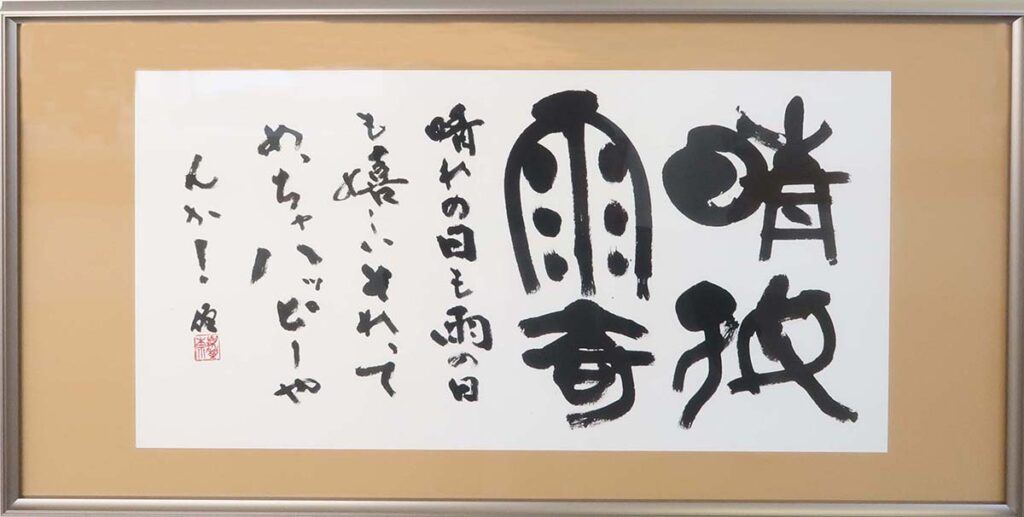 晴好
雨奇
晴れの日も雨の日
も嬉しいそれって
めっちゃハッピーや
んか!